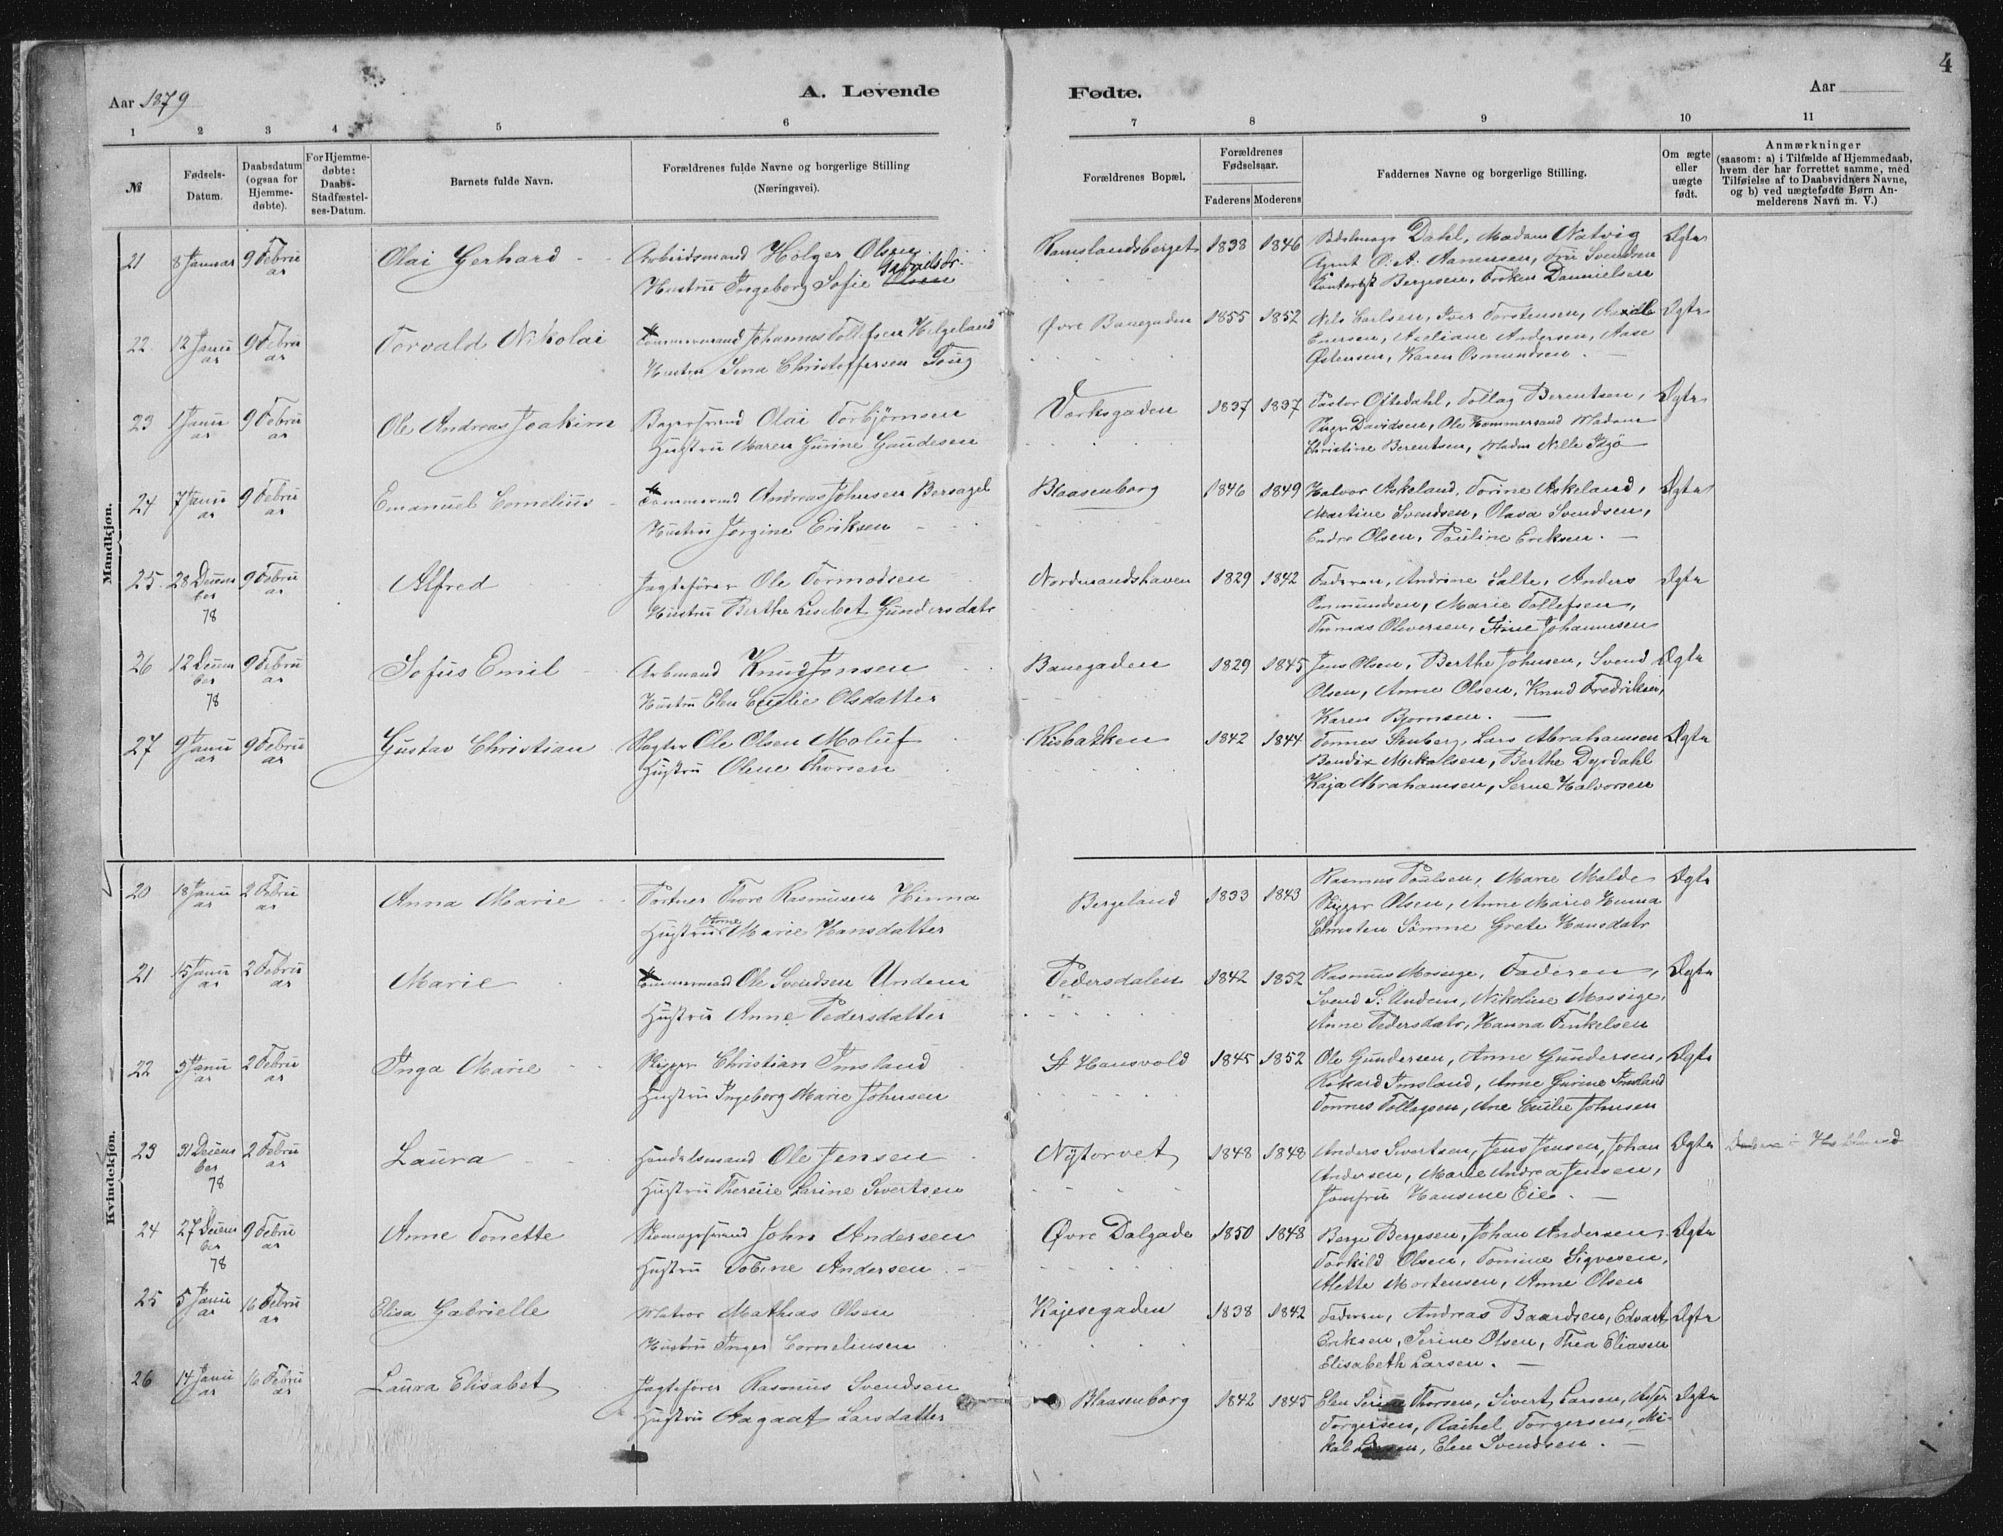 4
Aar 1879
A. Levende
Fødte.
Aar
1 2 3 4 5 6 7 8 9 10 11
№
Fødsels-Datum.
Daabsdatum (ogsaa for Hjemme-døbte).
For Hjemme-døbte: Daabs-Stadfæstel-ses-Datum.
Barnets fulde Navn.
Forældrenes fulde Navne og borgerlige Stilling
(Næringsvei).
Forældrenes Bopæl.
Forældrenes Fødselsaar.
Faderens Moderens
Faddernes Navne og borgerlige Stilling.
Om ægte eller uægte født.
Anmærkninger
(saasom: a) i Tilfælde af Hjemmedaab,
hvem der har forrettet samme, med
Tilføielse af to Daabsvidners Navne,
og b) ved uægtefødte Børn An-
melderens Navn m. V.)
Mandkjøn.
21 8 Januar 9 Februar Olai Gerhard Arbeidsmand Holger Olsen Ramslandsberget 1838 1846 Dahl, Madam Natvig Ægte
Hustru Ingeborg Sofie Gabrielsdr. Olsen Agent P. A. Aanensen, Fru Svendsen
Bergesen, Frøken Dannielsen
22 12 Januar 9 Februar Torvald Nikolai Tømmermand Johannes Tollefsen Helgeland Øvre Banegaden 1855 1852 Nils Carlsen, Iver Torstensen, Ægte
Hustru Sina Christoffersen Enersen, Andersen, Aase
Østensen, Karen Osmundsen.
23 1 Januar 9 Februar Ole Andreas Joakim Bagersvend Olai Torbjørnsen Værksgaden 1837 1837 Pastor Oftedahl, Tollag Berentsen, Ægte
Hustru Maren Gurine Gaudesen Davidsen, Ole Hammersand Madam
Christine Berentsen, Madm Nille
24 7 Januar 9 Februar Emanuel Cornelius Tømmermand Andreas Johnsen Bersagel Blaasenborg 1846 1849 Halvor Askeland, Torine Askeland, Ægte
Hustru Jorgine Eriksen Martine Svendsen, Olava Svendsen,
Endre Olsen, Pauline Eriksen.
25 28 December 78 9 Februar Alfred Jagtefører Ole Tormodsen Nordmandshaven 1829 1842 Faderen, Andrine Salte, Anders Ægte
Hustru Berthe Lisebet Gundersdatr Ommundsen, Marie Tollefsen,
Thomas Oliversen, Stine Johannesen
26 12 December 78 9 Februar Sofus Emil Arbmand Knud Jonsen Banegaden 1829 1845 Jens Olsen, Berthe Johnsen, Svend Ægte
Hustru Elen Cecilie Olsdatter Olsen, Anne Olsen, Knud Fredriksen,
Karen Bjørnsen.
27 9 Januar 9 Februar Gustav Christian Slagter Ole Olsen Moluf Risbakken 1842 1844 Tonnes Stenberg, Lars Abrahamsen Ægte
Hustru Olene Thorsen Bendix Mikalsen, Berthe Dyrdahl
Kaja Abrahamsen, Serine Halvorsen
Kvindekjøn.
20 18 Januar 2 Februar Anna Marie Portner Thore Rasmusen Hinna Bergeland 1833 1843 Rasmus Poulsen, Marie Malde Ægte
Hustru Anne Marie Hansdatter Skipper Olsen, Anne Marie Hinna
Christen Sømme Grete Hansdatr
21 15 Januar 2 Februar Marie Tømmermand Ole Svendsen Undem Pedersdalen 1842 1852 Rasmus Mossige, Faderen, Ægte
Hustru Anne Pedersdatter Svend S. Undem, Nikoline Mossige,
Anne Pedersdatr, Hanna Finkelsen
22 3 Januar 2 Februar Inga Marie Skipper Christian Imsland St Hansvold 1845 1852 Ole Gundersen, Anne Gundersen, Ægte
Hustru Ingeborg Marie Johnsen Rikard Imsland, Anne Gurine Imsland
Tonnes Tollagsen, Ane Cecilie Johnsen
23 31 December 78 2 Februar Laura Handelsmand Ole Jensen Nytorvet 1848 1848 Anders Sivertsen, Jens Jensen, Johan Ægte
Hustru Therese Larine Sivertsen Andersen, Marie Andrea Jensen,
Jomfru Hansine Eie.
24 27 December 78 9 Februar Anne Tonette Skomagersvend John Andersen Øvre Dalgade 1850 1848 Berge Bergesen, Johan Andersen, Ægte
Hustru Tobine Andersen Torkild Olsen, Tomine Sigvesen,
Alette Mortensen, Anne Olsen
25 5 Januar 16 Februar Elisa Gabrielle Matros Mathias Olsen Kajesegaden 1838 1842 Faderen, Andreas Baardsen, Edvart Ægte
Hustru Inger Corneliusen Eriksen, Serine Olsen, Thea Eliassen
Elisabeth Larsen.
26 14 Januar 16 Februar Laura Elisabet Jagtefører Rasmus Svendsen Blaasenborg 1842 1845 Elen Serine Thorsen, Sivert Larsen, Ægte
Hustru Aagaat Larsdatter Torgersen, Rachel Torgersen, Mi-
kal Larsen, Elen Svendsen.